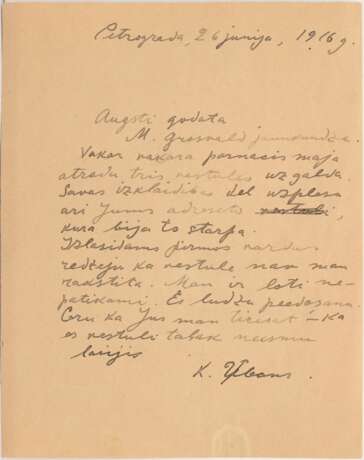 Petrograda, 26 junija, 1916 g.
Augsti godata
M. Grosvald jaunkundze.
Vakar vakara parnacis maja
atradu tris vestules uz galda.
Savas izklaidibas del uzplesu
ari Jums adreseto vestuli,
kura bija to starpa.
Izlasidams pirmos vardus
redzeju ka vestule nav man
rakstita. Man ir loti ne-
patikami. Es ludzu peedosana.
Ceru ka Jus man ticisat – ka
es vestuli talak neesmu
lasijis
K. Ubans.